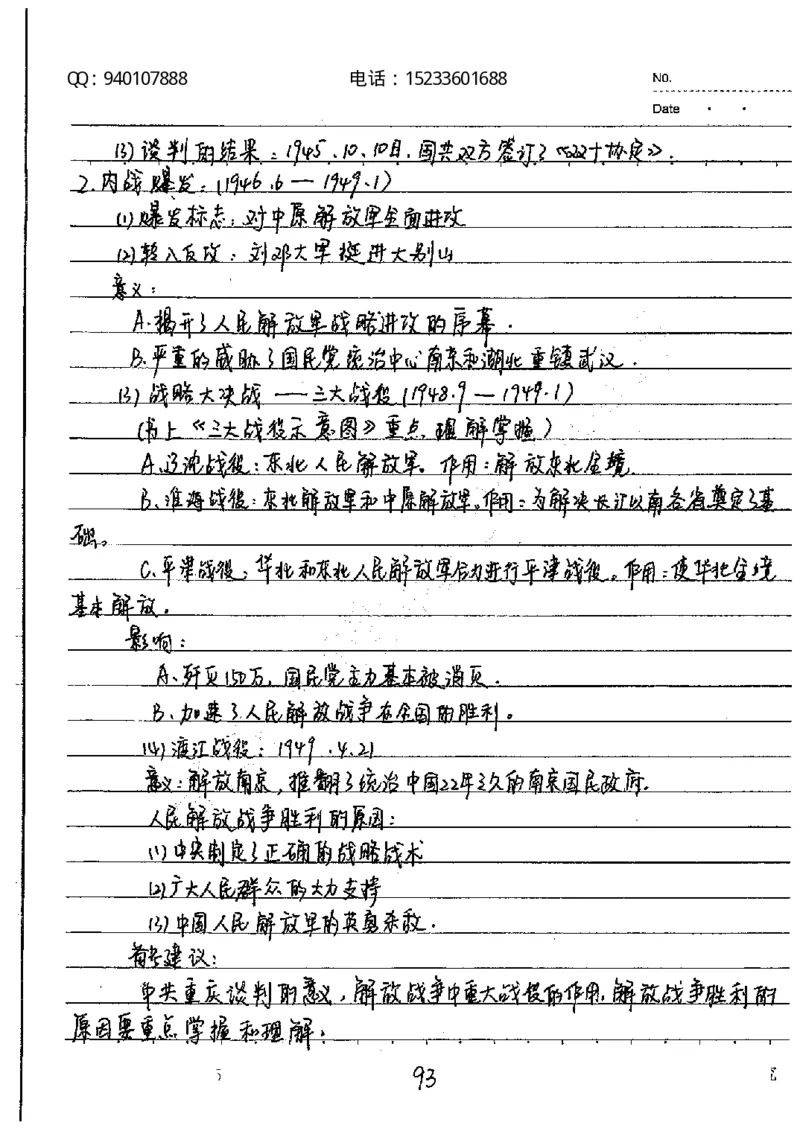 QQ：940107888 电话：15233601688 No.
Date
(3)谈判的结果：1945.10.10日，国共双方签订了《双十协定》。
2.内战爆发：(1946.6—1949.1)
(1)爆发标志：对中原解放军全面进攻
(2)转入反攻：刘邓大军挺进大别山
意义：
A.揭开了人民解放军战略进攻的序幕.
B.严重的威胁了国民党统治中心南京和湖北重镇武汉.
(3)战略大决战——三大战役(1948.9—1949.1)
(书上《三大战役示意图》重点理解掌握)
A.辽沈战役：东北人民解放军。作用：解放东北全境.
B、淮海战役：东北解放军和中原解放军。作用：为解决长江以南各省奠定了基
础。
C、平津战役：华北和东北人民解放军合力进行平津战役。作用：使华北全境
基本解放。
影响：
A、歼灭150万，国民党主力基本被消灭.
B、加速了人民解放战争在全国的胜利。
(4)渡江战役：1949.4.21
意义：解放南京，推翻了统治中国22年之久的南京国民政府.
人民解放战争胜利的原因：
(1)中央制定了正确的战略战术
(2)广大人民群众的大力支持
(3)中国人民解放军的英勇杀敌.
备考建议：
中共重庆谈判的意义，解放战争中重大战役的作用，解放战争胜利的
原因要重点掌握和理解；
93